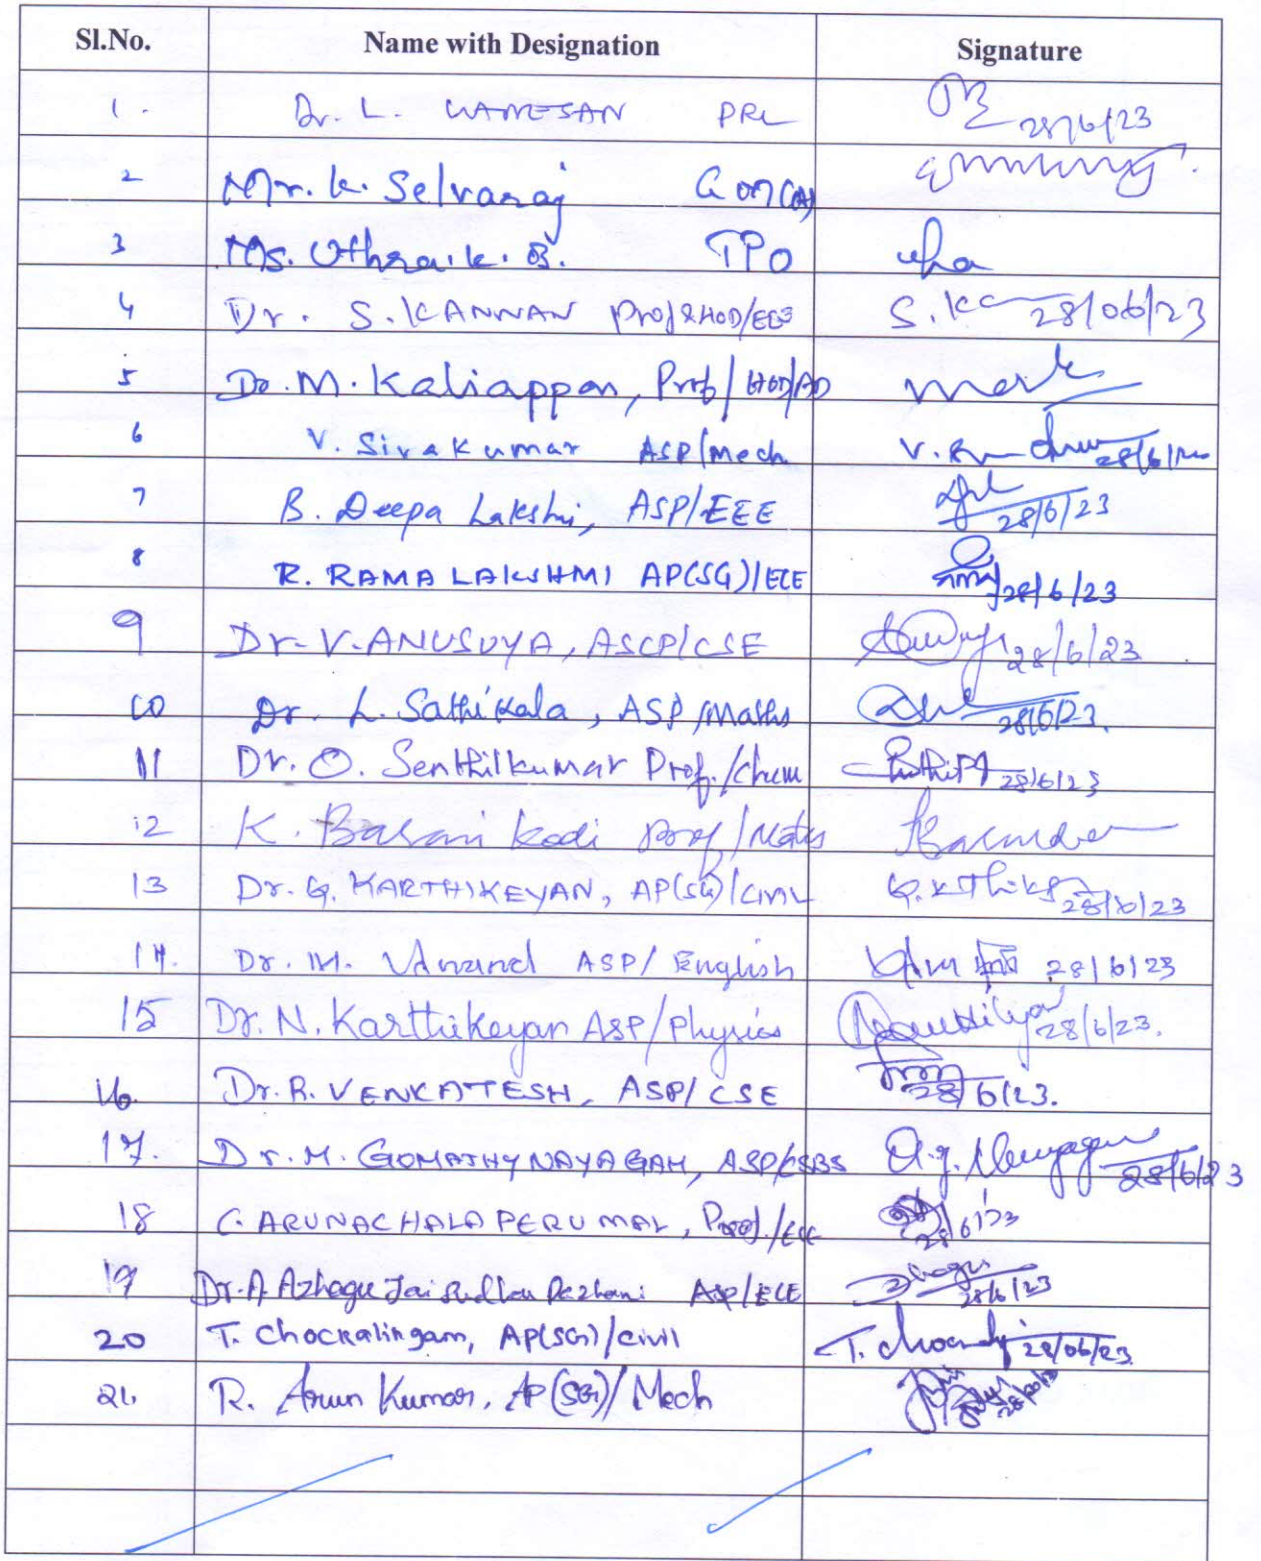 Sl.No. Name with Designation Signature
1. Dr. L. GANESAN PRL 28/6/23
2 Mr. K. Selvaraj
3 Ms. Uthra.K.B. TPO
4 Dr. S. KANNAN Prof & HOD/EEE S. 28/06/23
5 Dr. M. Kaliappan, Prof/HOD/AD
6 V. Sivakumar ASP/Mech V. 28/6/
7 B. Deepa Lakshmi, ASP/EEE 28/6/23
8 R. RAMALAKSHMI AP(SG)/ECE 28/6/23
9 Dr. V. ANUSUYA, ASCP/CSE 28/6/23
10 Dr. L. Sathikala, ASP/Maths 28/6/23.
11 Dr. O. Senthilkumar Prof./Chem 28/6/23
12 K. Basari Kodi Prof/Maths
13 Dr. G. KARTHIKEYAN, AP(SG)/CIVIL 28/6/23
14. Dr. M. Vanand ASP/English 28/6/23
15 Dr. N. Karthikeyan ASP/Physics 28/6/23.
16. Dr. R. VENKATESH, ASP/CSE 28/6/23.
17. Dr. M. GOMATHYNAYAGAM, ASP/CSBS 28/6/23
18 C. ARUNACHALAPERUMAL, Prof./ECE 28/6/23
19 Dr. A. Azhagu Jaisudhan Pazhani ASP/ECE 28/6/23
20 T. Chockalingam, AP(SG)/Civil T. 28/06/23
21. R. Arun Kumar, AP(SG)/Mech